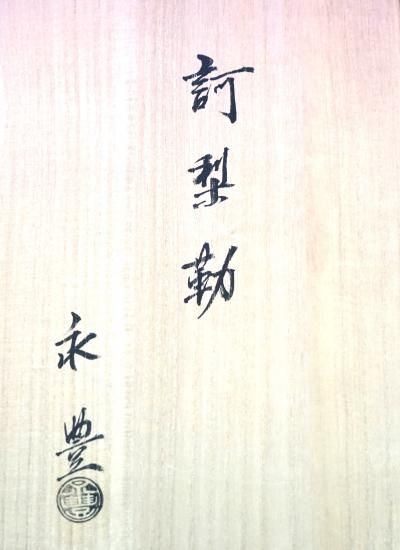 訶梨勒
永豊